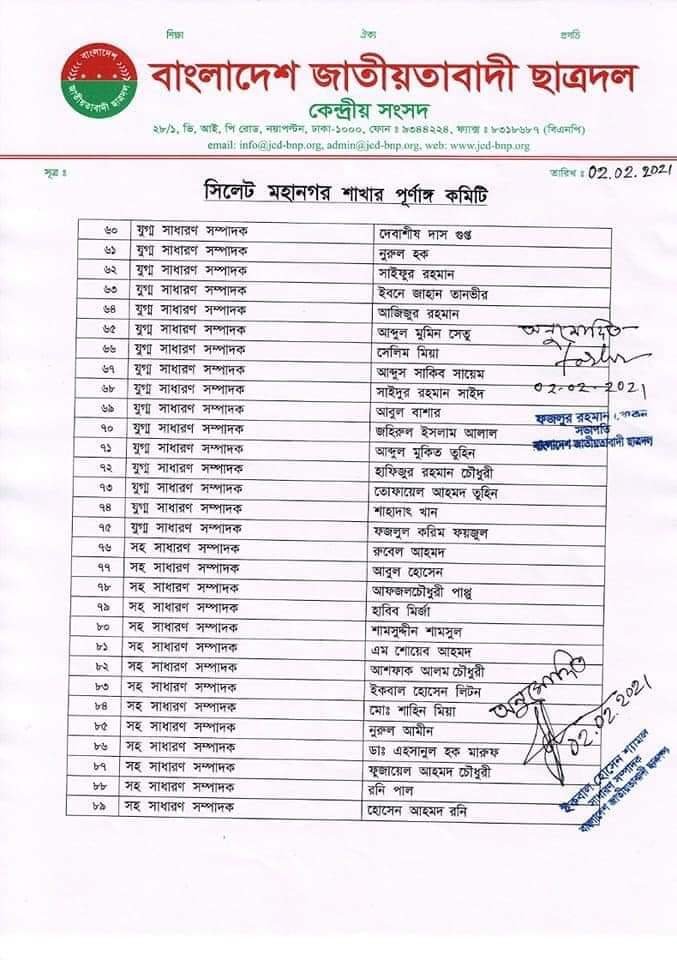 শিক্ষা ঐক্য প্রগতি
বাংলাদেশ
জাতীয়তাবাদী ছাত্রদল
বাংলাদেশ জাতীয়তাবাদী ছাত্রদল
কেন্দ্রীয় সংসদ
২৮/১, ভি, আই, পি রোড, নয়াপল্টন, ঢাকা-১০০০, ফোন : ৯৩৪৪২২৪, ফ্যাক্স : ৮৩১৮৬৮৭ (বিএনপি)
email: info@jcd-bnp.org, admin@jcd-bnp.org, web: www.jcd-bnp.org
সূত্র : তারিখ : 02.02.2021
সিলেট মহানগর শাখার পূর্ণাঙ্গ কমিটি
৬০ যুগ্ম সাধারণ সম্পাদক দেবাশীষ দাস গুপ্ত
৬১ যুগ্ম সাধারণ সম্পাদক নুরুল হক
৬২ যুগ্ম সাধারণ সম্পাদক সাইফুর রহমান
৬৩ যুগ্ম সাধারণ সম্পাদক ইবনে জাহান তানভীর
৬৪ যুগ্ম সাধারণ সম্পাদক আজিজুর রহমান
৬৫ যুগ্ম সাধারণ সম্পাদক আব্দুল মুমিন সেতু
৬৬ যুগ্ম সাধারণ সম্পাদক সেলিম মিয়া
৬৭ যুগ্ম সাধারণ সম্পাদক আব্দুস সাকিব সায়েম
৬৮ যুগ্ম সাধারণ সম্পাদক সাইদুর রহমান সাইদ
৬৯ যুগ্ম সাধারণ সম্পাদক আবুল বাশার
৭০ যুগ্ম সাধারণ সম্পাদক জহিরুল ইসলাম আলাল
৭১ যুগ্ম সাধারণ সম্পাদক আব্দুল মুকিত তুহিন
৭২ যুগ্ম সাধারণ সম্পাদক হাফিজুর রহমান চৌধুরী
৭৩ যুগ্ম সাধারণ সম্পাদক তোফায়েল আহমদ তুহিন
৭৪ যুগ্ম সাধারণ সম্পাদক শাহাদাৎ খান
৭৫ যুগ্ম সাধারণ সম্পাদক ফজলুল করিম ফয়জুল
৭৬ সহ সাধারণ সম্পাদক রুবেল আহমদ
৭৭ সহ সাধারণ সম্পাদক আবুল হোসেন
৭৮ সহ সাধারণ সম্পাদক আফজলচৌধুরী পাপ্পু
৭৯ সহ সাধারণ সম্পাদক হাবিব মির্জা
৮০ সহ সাধারণ সম্পাদক শামসুদ্দীন শামসুল
৮১ সহ সাধারণ সম্পাদক এম শোয়েব আহমদ
৮২ সহ সাধারণ সম্পাদক আশফাক আলম চৌধুরী
৮৩ সহ সাধারণ সম্পাদক ইকবাল হোসেন লিটন
৮৪ সহ সাধারণ সম্পাদক মোঃ শাহিন মিয়া
৮৫ সহ সাধারণ সম্পাদক নুরুল আমীন
৮৬ সহ সাধারণ সম্পাদক ডাঃ এহসানুল হক মারুফ
৮৭ সহ সাধারণ সম্পাদক ফুজায়েল আহমদ চৌধুরী
৮৮ সহ সাধারণ সম্পাদক রনি পাল
৮৯ সহ সাধারণ সম্পাদক হোসেন আহমদ রনি
অনুমোদিত
02-02-2021
ফজলুর রহমান খোকন
সভাপতি
বাংলাদেশ জাতীয়তাবাদী ছাত্রদল
অনুমোদিত
02.02.2021
ইকবাল হোসেন শ্যামল
সাধারণ সম্পাদক
বাংলাদেশ জাতীয়তাবাদী ছাত্রদল